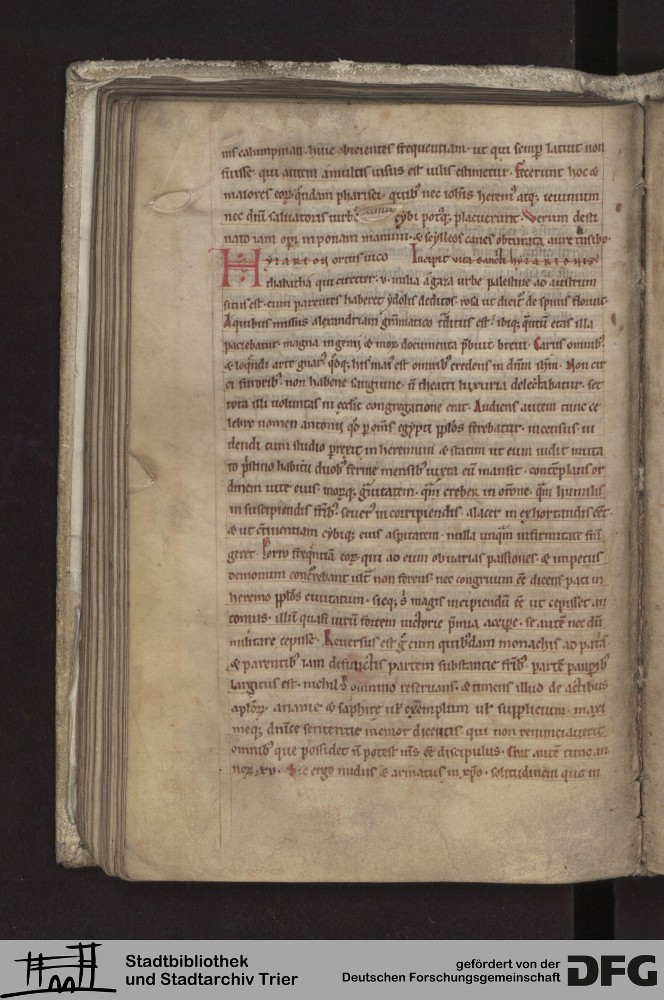 mẽ calumpniant̃. huic obicientes frequentiam. ut qui semp̲ latuit non
fuisse. qui autem a multis uisus est uilis estimetur. Fecerunt hoc &
maiores eoꝝ q̃ndam pharisei. quibꝰ nec ioh̃is heremꝰ atq; ieiunium
nec dñi saluatoris turbe cybi potꝰq; placuerunt. Verum desti
nato iam op̲i inponam manum. & scylleos canes obturata aure t̃nsibo.
HYLARION ortus uico Incipit uita sancti hylarionis
thabatha qui circiter .v. milia a gaza urbe palestine ad austrum
situs est. cum parentes haberet ydolis deditos. rosa ut dicit̃ de spinis floruit.
A quibus missus alexandriam gr̃mmatico t̃ditus est. ibiq; q̃ntũ etas illa
paciebatur. magna ingenij & moꝝ documenta p̃buit. breui. Carus omnibꝰ.
& loq̃ndi arte gnarꝰ. q̃dq; his maiꝰ est omnibꝰ credens in dñm ihm̃. Non cir
ci furoribꝰ. non habene sanguine. ñ theatri luxuria delectabatur. set
tota illi uoluntas in ecclie congregatione erat. Audiens autem tunc ce
lebre nomen antonij. qd̃ p̲ om̃s egypti pp̃los ferebatur. incensus ui
dendi eum studio p̲rexit in heremum & statim ut eum uidit muta
to p̃stino habitu duobꝰ ferme mensibꝰ iuxta eũ mansit. contẽplans or
dinem uite eius. moꝝq; g̃uitatem. q̃m creber in or̃one. q̃m humilis
in suscipiendis fr̃ibꝰ. seuerꝰ in corripiendis. alacer in exhortandis eẽt.
& ut c̃tinentiam cybiq; eius asp̲itatem. nulla unq̃m infirmitas fr̃n
geret. Porro freq̃ntiã eoꝝ. qui ad eum ob uarias passiones & impetus
demonum concurrebant ult̃ non ferens. nec congruum eẽ dicens pati in
heremo pp̃los ciuitatum. sicq; s̃ magis incipiendũ eẽ ut cepisset an
tonius. illũ quasi uirũ fortem uictorie p̃mia accipe. se autẽ nec dũ
militare cepisse. Reuersus est g̃ cum quibꝰdam monachis ad pat̃ã
& parentibꝰ iam defunctis partem substantie fr̃ibꝰ. partẽ paup̲ibꝰ
largitus est. nichil s̃ omnino reseruans. & timens illud de actibus
aplõꝝ. ananie & saphire uł exẽmplum uł supplicium. maxi
meq; dñice sententie memor dicentis. qui non renunciauerit
omnibꝰ que possidet ñ potest m̃s eẽ discipulus. Erat autẽ tunc an
noꝝ .xv. Sic ergo nudus & armatus in xp̃o. solitudinem que in
Stadtbibliothek
und Stadtarchiv Trier
gefördert von der
Deutschen Forschungsgemeinschaft
DFG